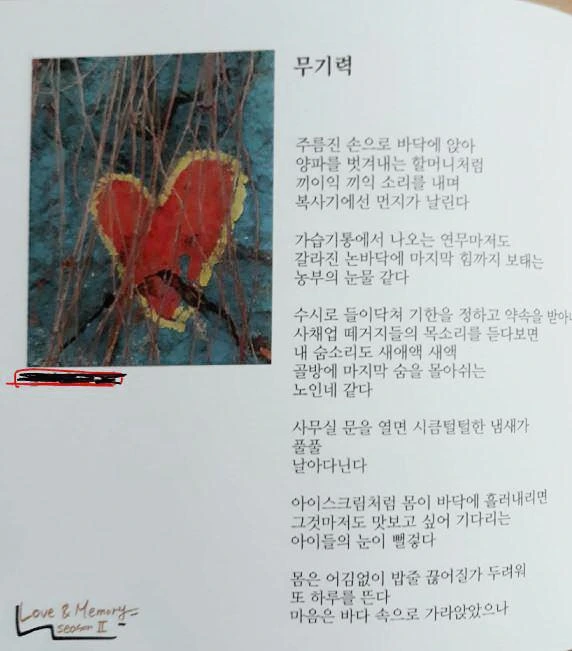 무기력
주름진 손으로 바닥에 앉아
양파를 벗겨내는 할머니처럼
끼이익 끼익 소리를 내며
복사기에선 먼지가 날린다
가습기통에서 나오는 연무마저도
갈라진 논바닥에 마지막 힘까지 보태는
농부의 눈물 같다
수시로 들이닥쳐 기한을 정하고 약속을 받아
사채업 떼거지들의 목소리를 듣다보면
내 숨소리도 새애액 새액
골방에 마지막 숨을 몰아쉬는
노인네 같다
사무실 문을 열면 시큼털털한 냄새가
풀풀
날아다닌다
아이스크림처럼 몸이 바닥에 흘러내리면
그것마저도 맛보고 싶어 기다리는
아이들의 눈이 뻘겋다
몸은 어김없이 밥줄 끊어질가 두려워
또 하루를 뜬다
마음은 바다 속으로 가라앉았으나
Love & Memory
season II